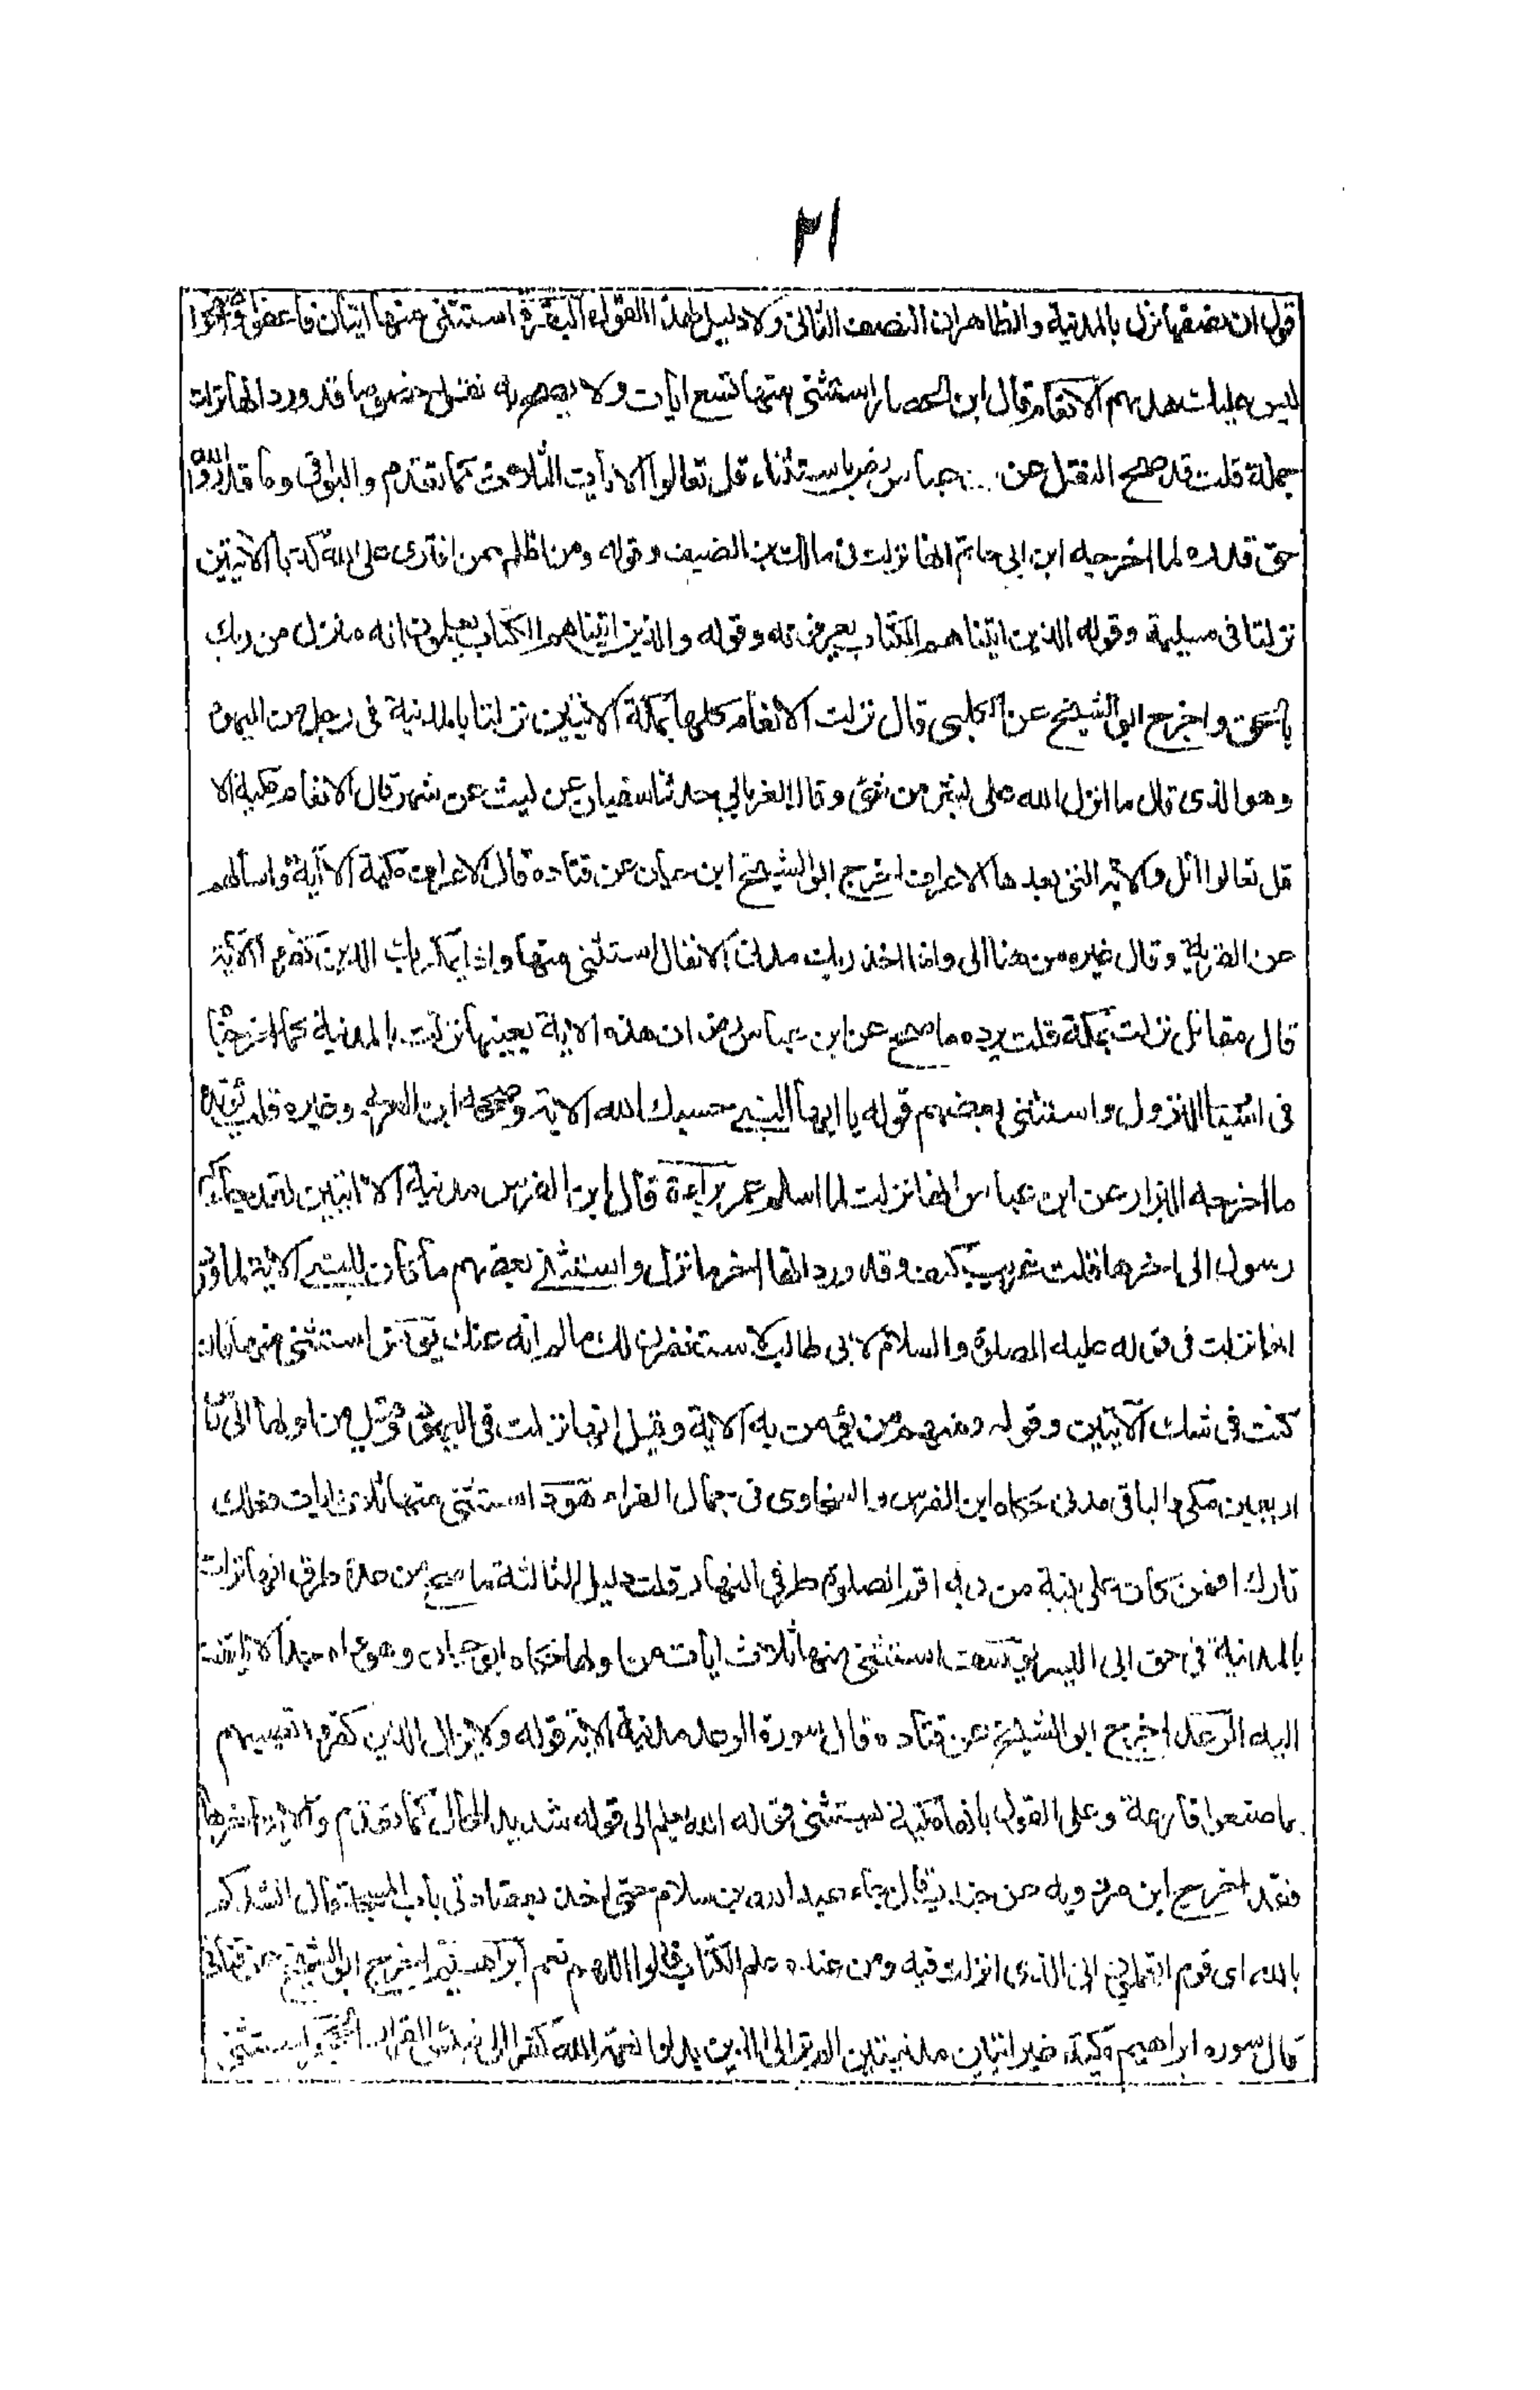 ٢١
قول ان نصفها نزل بالمدنية والظاهر ان النصف الثانى ولا دليل لهذا القول البقرة استثنى منها ايتان فاعفوا واصفحوا
ليس عليك هدىهم الانعام قال ابن الحصار استثنى منها تسع ايات ولا يصح به نقل خصوصا قد ورد انها نزلت
جملة قلت قد صح النقل عن ابن عباس رض باستثناء قل تعالوا الايات الثلاث كما تقدم والبواقى وما قدروا الله
حق قدره لما اخرجه ابن ابى حاتم انها نزلت فى مالك بن الضيف وقوله ومن اظلم ممن افترى على الله كذبا الآيتين
نزلتا فى مسيلمة وقوله الذين اتيناهم الكتاب يعرفونه وقوله والذين اتيناهم الكتاب يعلمون انه منزل من ربك
بالحق واخرج ابو الشيخ عن الكلبى قال نزلت الانعام كلها بمكة الا ايتين نزلتا بالمدنية فى رجل من اليهود
وهو الذى قال ما انزل الله على بشر من شئ وقال الفريابى حدثنا سفيان عن ليث عن بشر قال الانعام مكية الا
قل تعالوا اتل والاية التى بعدها الاعراف اخرج ابو الشيخ ابن حبان عن قتاده قال الاعراف مكية الا آية واسألهم
عن القرية وقال غيره من هنا الى واذ اخذ ربك مدنى الانفال استثنى منها واذ يمكر بك الذين كفروا الآية
قال مقاتل نزلت بمكة قلت يرده ما صح عن ابن عباس رض ان هذه الاية بعينها نزلت بالمدنية كما اخرجنا
فى اسباب النزول واستثنى بعضهم قوله يا ايها النبى حسبك الله الاية وصححه ابن العربى وغيره قلت يؤيده
ما اخرجه البزار عن ابن عباس انها نزلت لما اسلم عمر براءة قال ابن الفرس مدنية الا ايتين لقد جاءكم
رسول الى اخرها قلت غريب كيف وقد ورد انها اخر ما نزل واستثنى بعضهم ما كان للنبى الاية لما ورد
انها نزلت فى قوله عليه الصلوة والسلام لابى طالب لاستغفرن لك ما لم انه عنك يونس استثنى منها فان
كنت فى شك الآيتين وقوله ومنهم من يؤمن به الاية وقيل انها نزلت فى اليهود وقيل من اولها الى راس
اربعين مكى والباقى مدنى حكاه ابن الفرس والسخاوى فى جمال القراء هود استثنى منها ثلاث ايات فلعلك
تارك افمن كان على بينة من ربه اقم الصلوة طرفى النهار قلت دليل الثالثة ما صح من عدة طرق انها نزلت
بالمدنية فى حق ابى اليسر يوسف استثنى منها ثلاث ايات من اولها حكاه ابو حيان وهو واه جدا لا يلتفت
اليه الرعد اخرج ابو الشيخ عن قتاده قال سورة الرعد مدنية الا اية قوله ولا يزال الذين كفروا تصيبهم
بما صنعوا قارعة وعلى القول بانها مكية يستثنى قوله الله يعلم الى قوله شديد المحال كما تقدم والاية اخرها
فقد اخرج ابن مردويه عن جندب قال جاء عبد الله بن سلام حتى اخذ بعضادتى باب المسجد قال انشدكم
بالله اى قوم اتعلمون انى الذى انزلت فيه ومن عنده علم الكتاب قالوا اللهم نعم ابراهيم اخرج ابو الشيخ عن قتادة
قال سورة ابراهيم مكية غير ايتان مدنيتين الم تر الى الذين بدلوا نعمة الله كفرا الى فبئس القرار الحجر استثنى